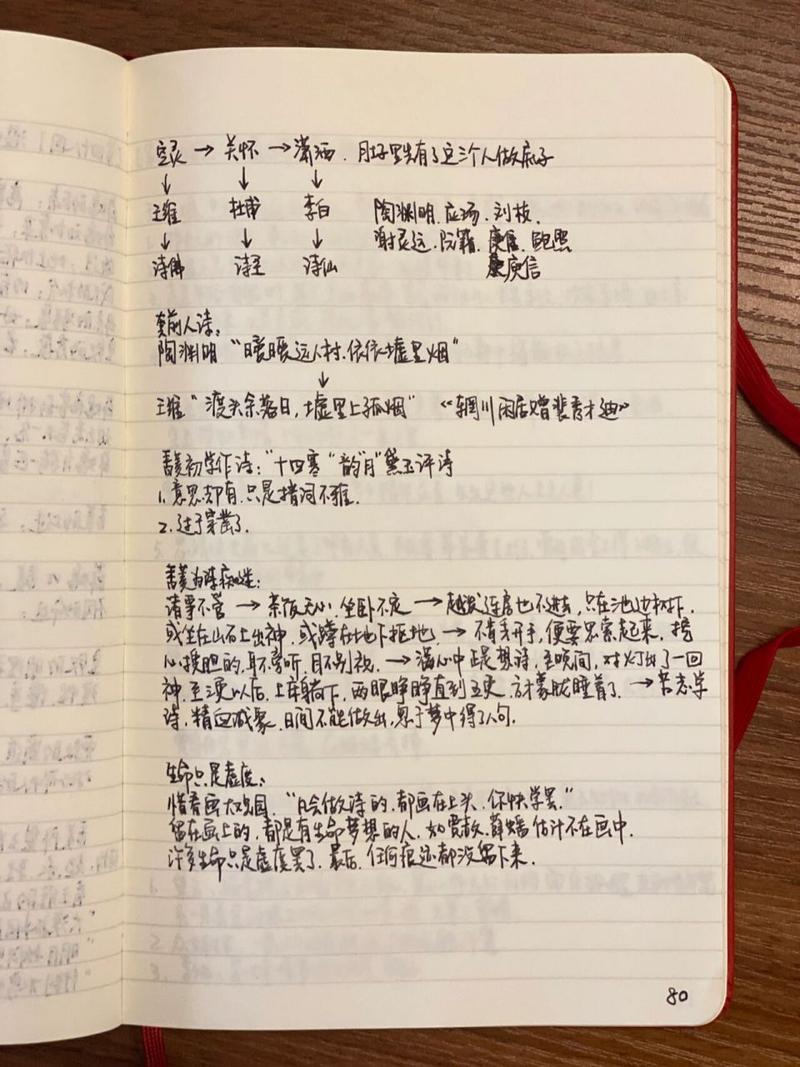 空灵 → 关怀 → 潇洒. 肚子里先有了这三个人做底子
↓ ↓ ↓
王维 杜甫 李白 陶渊明. 应玚. 刘桢.
↓ ↓ ↓ 谢灵运. 阮籍. 庾信. 鲍照
诗佛 诗圣 诗仙 庾信
套前人诗:
陶渊明 "暧暧远人村. 依依墟里烟"
↓
王维 "渡头余落日, 墟里上孤烟" 《辋川闲居赠裴秀才迪》
香菱初学作诗: "十四寒" 韵 "月" 黛玉评诗
1. 意思却有. 只是措词不雅.
2. 过于穿凿了.
香菱为诗痴迷:
诸事不管 → 茶饭无心. 坐卧不定 → 越发连房也不进去, 只在池边树下.
或坐在山石上出神, 或蹲在地下抠地. → 不肯丢开手, 便要思索起来, 挖
心搜胆的, 耳不旁听, 目不别视. → 满心中正是想诗, 至晚间, 对灯出了一回
神, 至三更以后, 上床躺下, 两眼睁睁直到五更 方才蒙胧睡着了. → 苦志学
诗, 精血诚聚. 日间不能做出, 忽于梦中得了八句.
生命只是虚度:
惜春画大观园. "凡会做诗的. 都画在上头. 你快学罢."
留在画上的, 都是有生命梦想的人, 如贾赦. 薛蟠估计不在画中.
许多生命只是虚度罢了. 最后. 任何痕迹都没留下来.
80